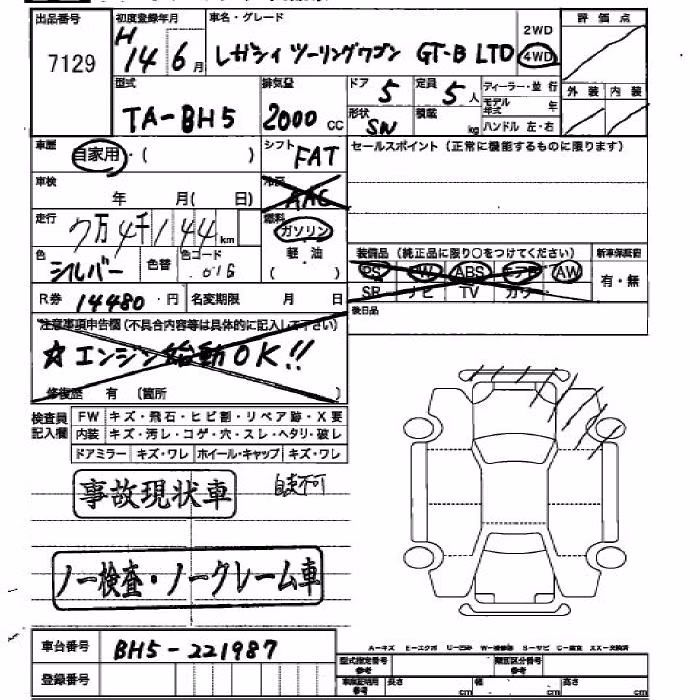 出品番号 初度登録年月 車名・グレード 2WD 評価点
7129 H14 6月 レガシィ ツーリングワゴン GT-B LTD 4WD
型式 排気量 ドア 5 定員 5人 ディーラー・並行 外装 内装
TA-BH5 2000cc 形状 SW 積載 kg モデル年式 年
ハンドル 左・右
車歴 自家用・( ) シフト FAT セールスポイント(正常に機能するものに限ります)
車検 年 月( 日) 冷房 AAC
走行 7万4千144km 燃料 ガソリン
色 シルバー 色替 色コード 01G 軽・油 ( ) 装備品(純正品に限り○をつけてください) 新車保証書
PS PW ABS エアB AW 有・無
R券 14480・円 名変期限 月 日 SR ナビ TV カワ
注意事項申告欄(不具合内容等は具体的に記入して下さい) 後日品
☆エンジン始動OK!!
修復歴 有 〔箇所 〕
検査員記入欄 FW キズ・飛石・ヒビ割・リペア跡・X要
内装 キズ・汚レ・コゲ・穴・スレ・ヘタリ・破レ
ドアミラー キズ・ワレ ホイール・キャップ キズ・ワレ
事故現状車 自走不可
ノー検査・ノークレーム車
A-キズ E-エクボ U-凹み W-補修跡 S-サビ C-腐食 XX-交換済
車台番号 BH5-221987 型式指定番号 参考 類別区分番号 参考
登録番号 車庫証明用 参考 長さ cm 幅 cm 高さ cm